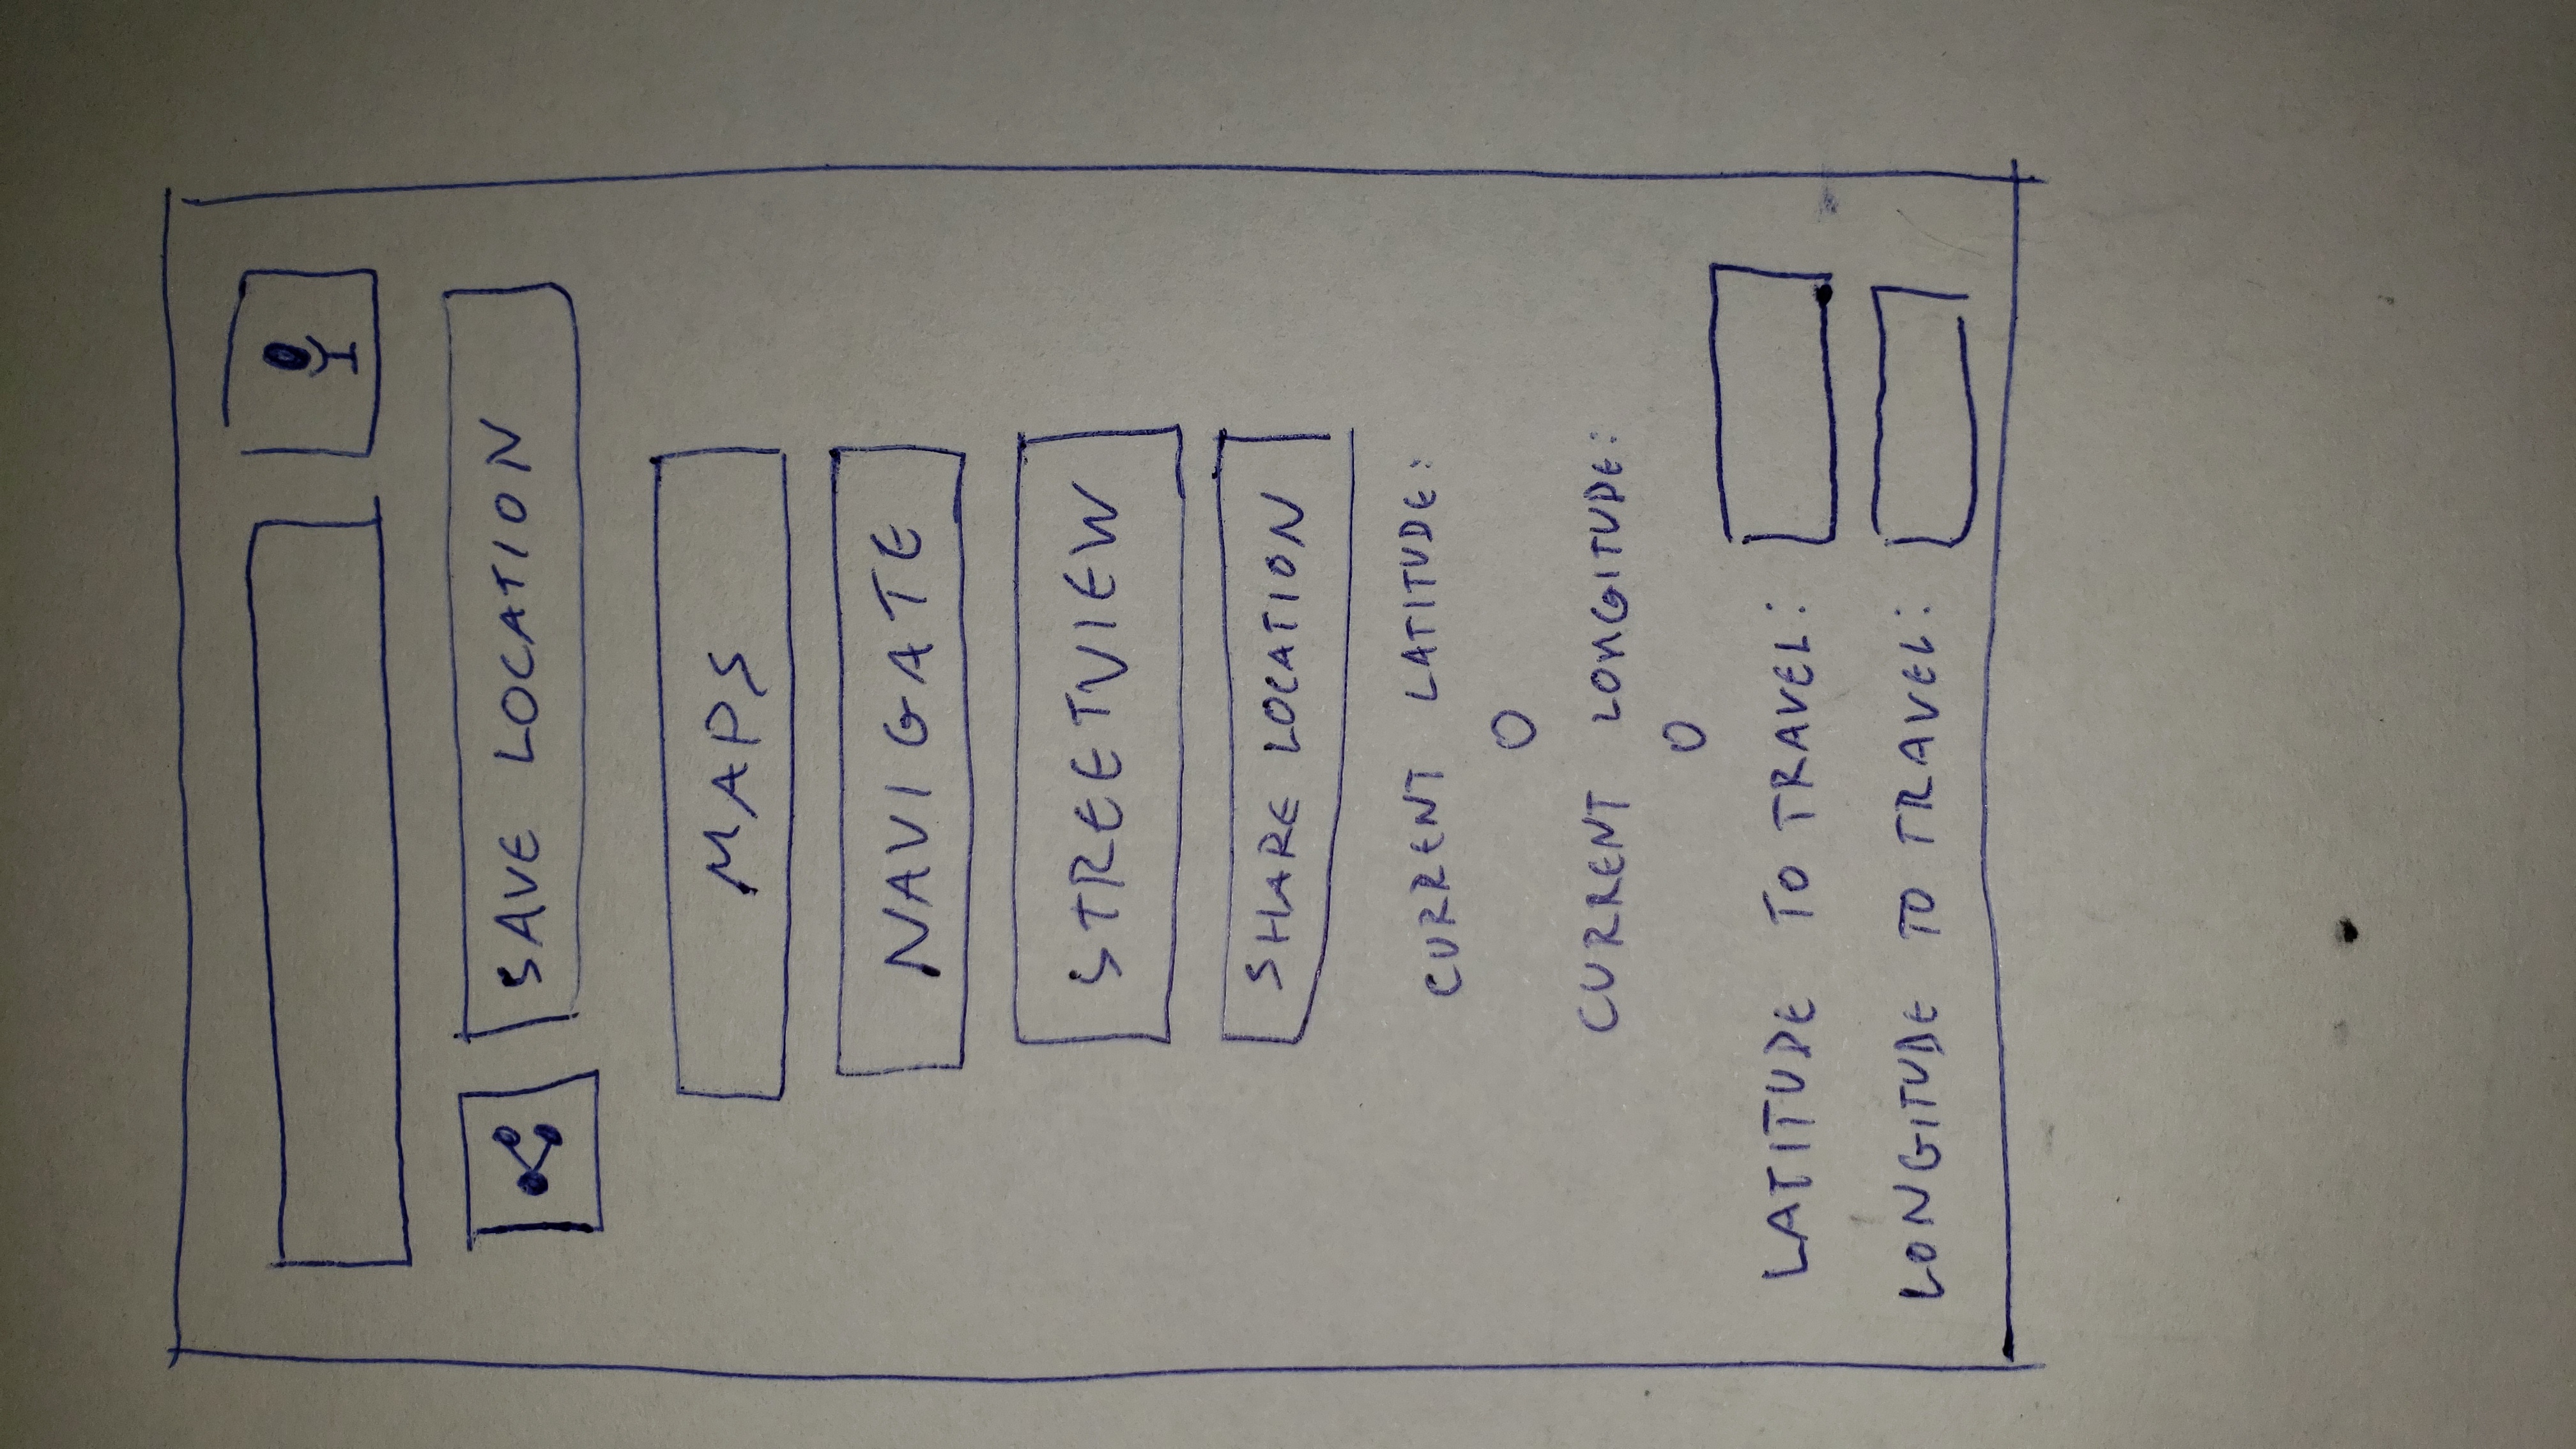 SAVE LOCATION
MAPS
NAVIGATE
STREETVIEW
SHARE LOCATION
CURRENT LATITUDE:
0
CURRENT LONGITUDE:
0
LATITUDE TO TRAVEL:
LONGITUDE TO TRAVEL: